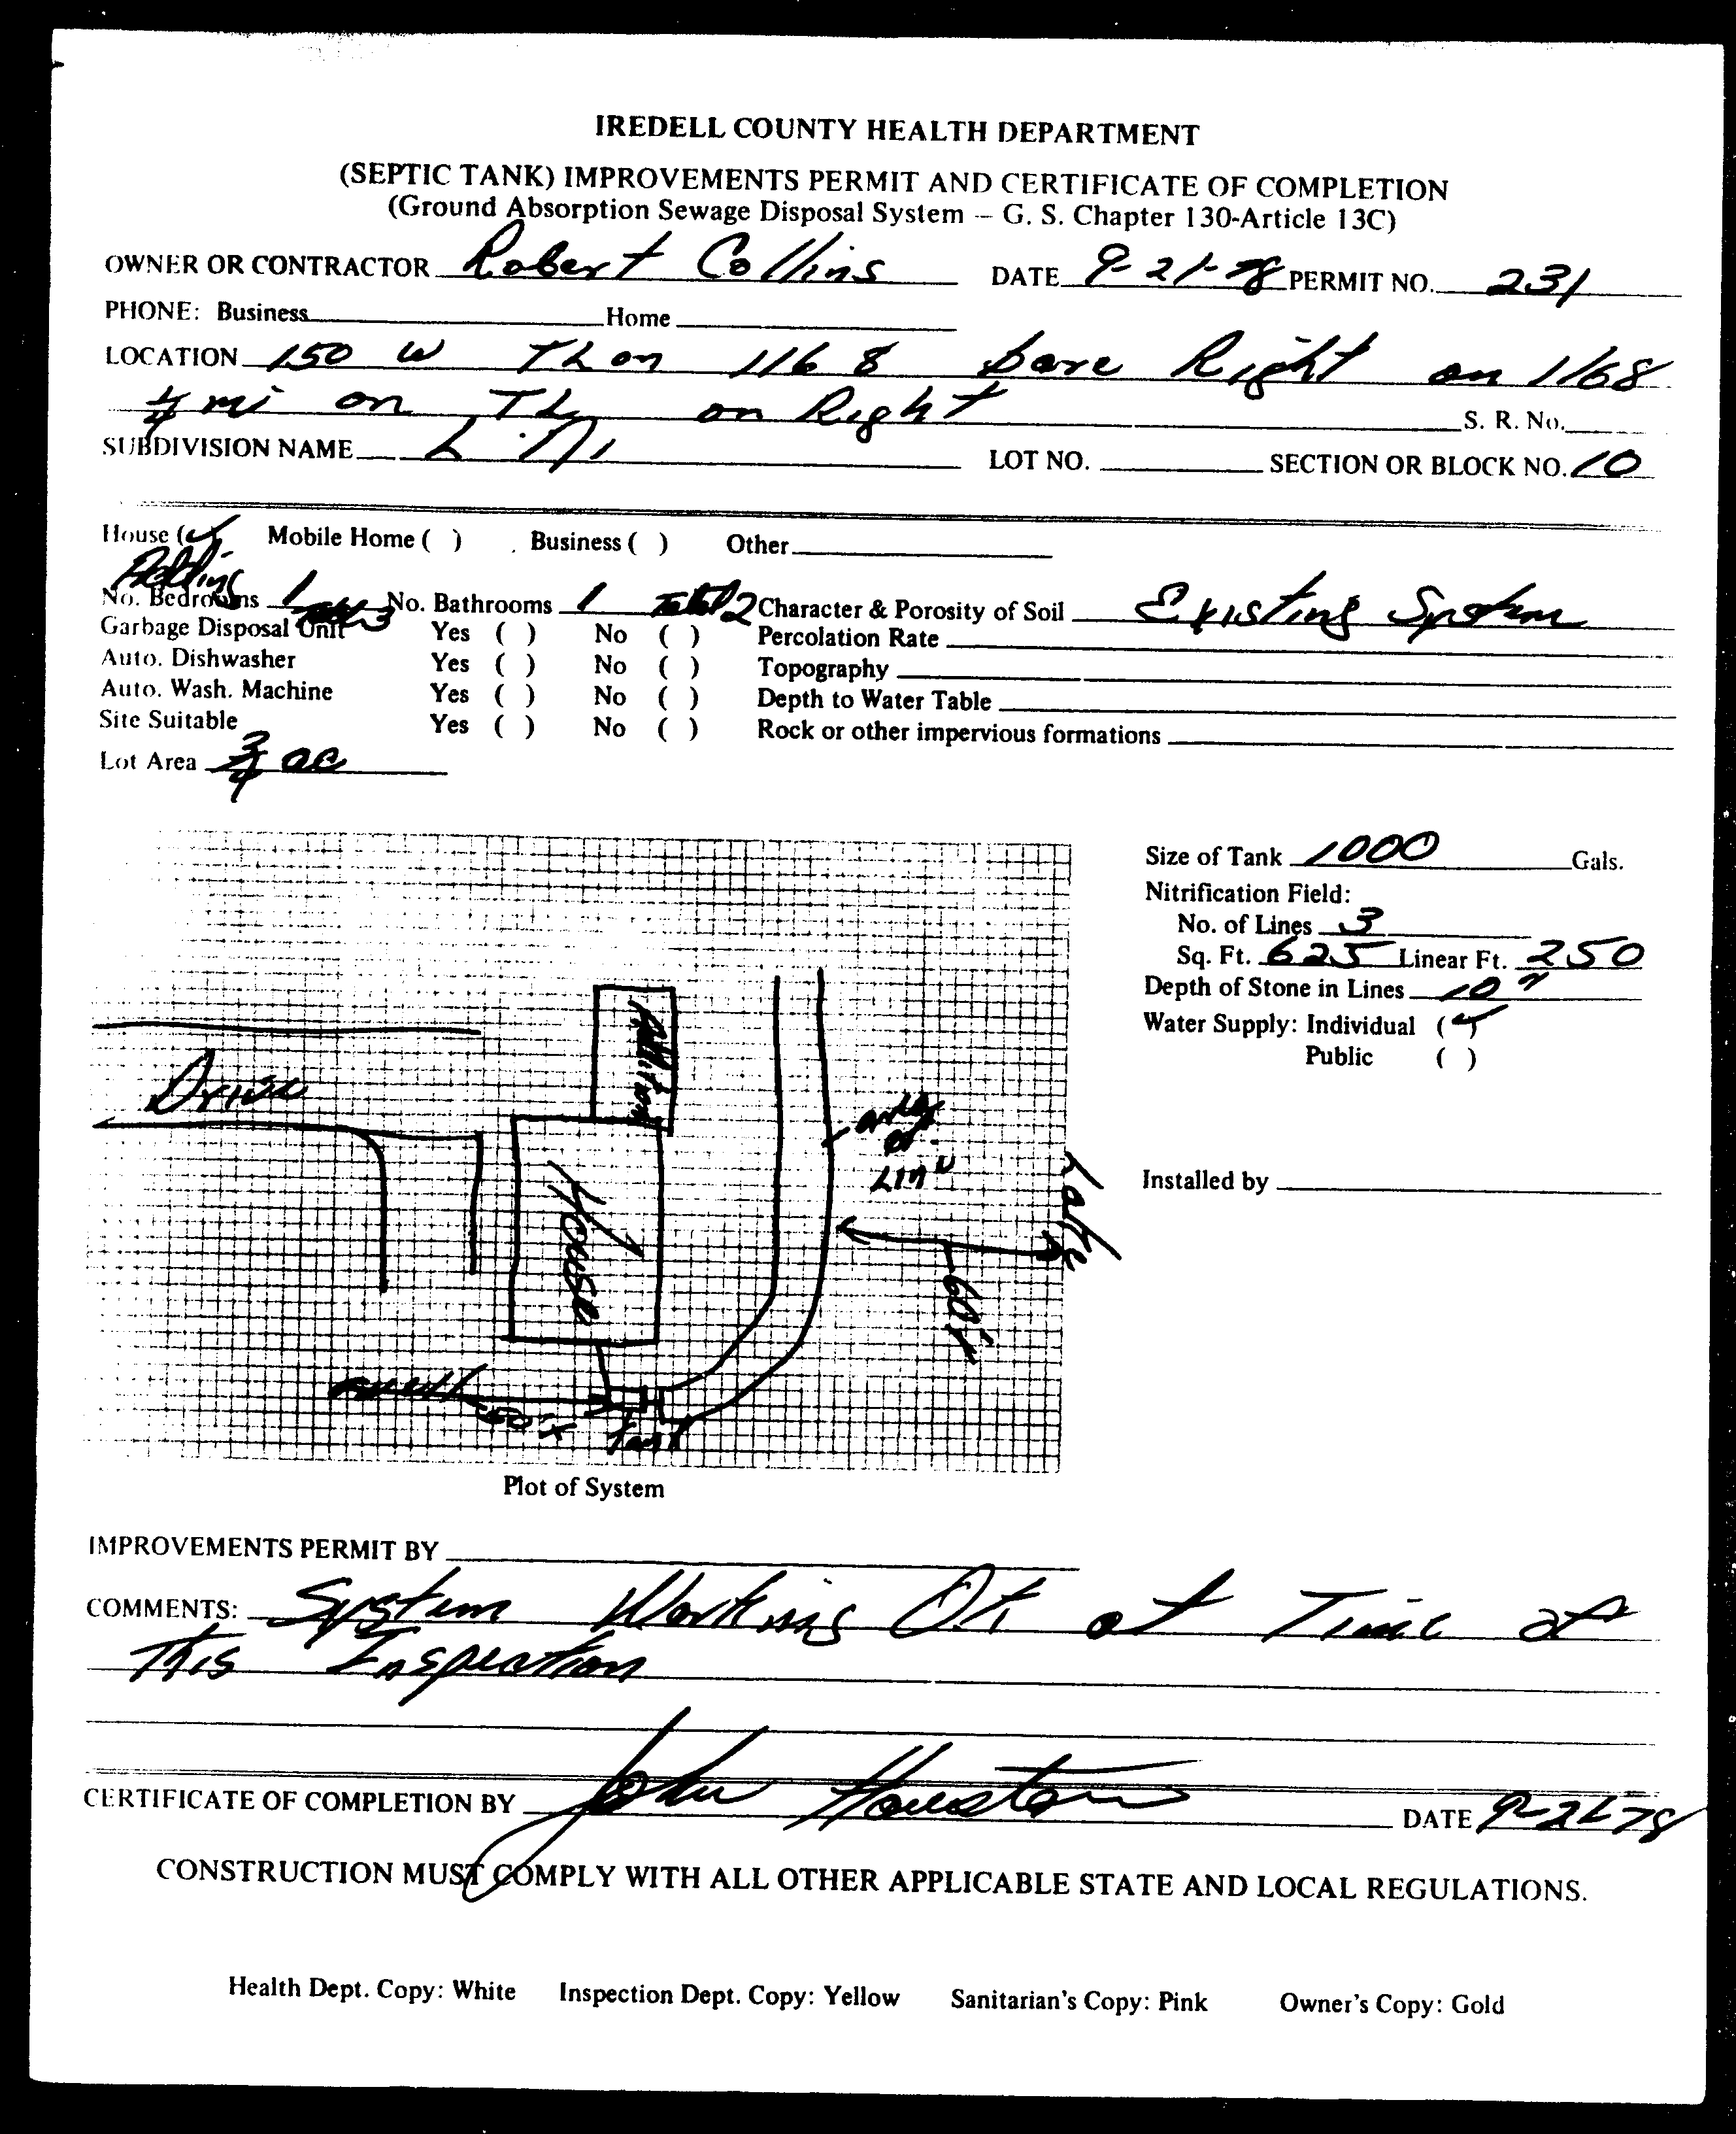 IREDELL COUNTY HEALTH DEPARTMENT
(SEPTIC TANK) IMPROVEMENTS PERMIT AND CERTIFICATE OF COMPLETION
(Ground Absorption Sewage Disposal System — G. S. Chapter 130-Article 13C)
OWNER OR CONTRACTOR Robert Collins DATE 9-21-78 PERMIT NO. 231
PHONE: Business Home
LOCATION 150 W TL on 1168 bare Right on 1168
1/4 mi on TL on Right S. R. No.
SUBDIVISION NAME LOT NO. SECTION OR BLOCK NO. 10
House (✓) Mobile Home ( ) Business ( ) Other
Adding
No. Bedrooms 1 No. Bathrooms 1 Total 2 Character & Porosity of Soil Existing System
Garbage Disposal Unit 3 Yes ( ) No ( ) Percolation Rate
Auto. Dishwasher Yes ( ) No ( ) Topography
Auto. Wash. Machine Yes ( ) No ( ) Depth to Water Table
Site Suitable Yes ( ) No ( ) Rock or other impervious formations
Lot Area 3/4 ac
Size of Tank 1000 Gals.
Nitrification Field:
No. of Lines 3
Sq. Ft. 625 Linear Ft. 250
Depth of Stone in Lines 10"
Water Supply: Individual (✓)
Public ( )
Addition
Drive
House
Lake
60'±
well
50'±
Tank
Installed by
Plot of System
IMPROVEMENTS PERMIT BY
COMMENTS: System Working OK at Time of
This Inspection
CERTIFICATE OF COMPLETION BY John Houston DATE 9-21-78
CONSTRUCTION MUST COMPLY WITH ALL OTHER APPLICABLE STATE AND LOCAL REGULATIONS.
Health Dept. Copy: White Inspection Dept. Copy: Yellow Sanitarian's Copy: Pink Owner's Copy: Gold